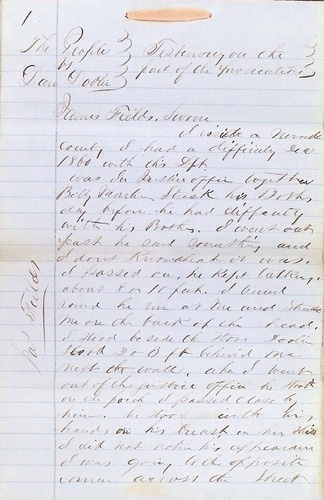 1
The People } Testimony on the
vs
Dan Dooly } part of the Prosecution
James Fields, Sworn
I reside in Nevada
County I had a difficulty
1860 with this Dft
was in Justice office together
Billy struck his Brother
day before he had difficulty
with his Brother. I went out
past he said something and
I dont know what it was.
I passed on, he kept talking,
about 8 or 10 feet. I turned
round he run at me and struck
me on the back of the head.
I stood beside the Stove Dooly
stood 2 or 3 ft behind me
next the wall. when I went
out of the justice office he stood
on porch I passed close by
him. he stood with his
hands on his breast
I did not notice his appearance
I was going to the opposite
corner across the Street
Jas Fields